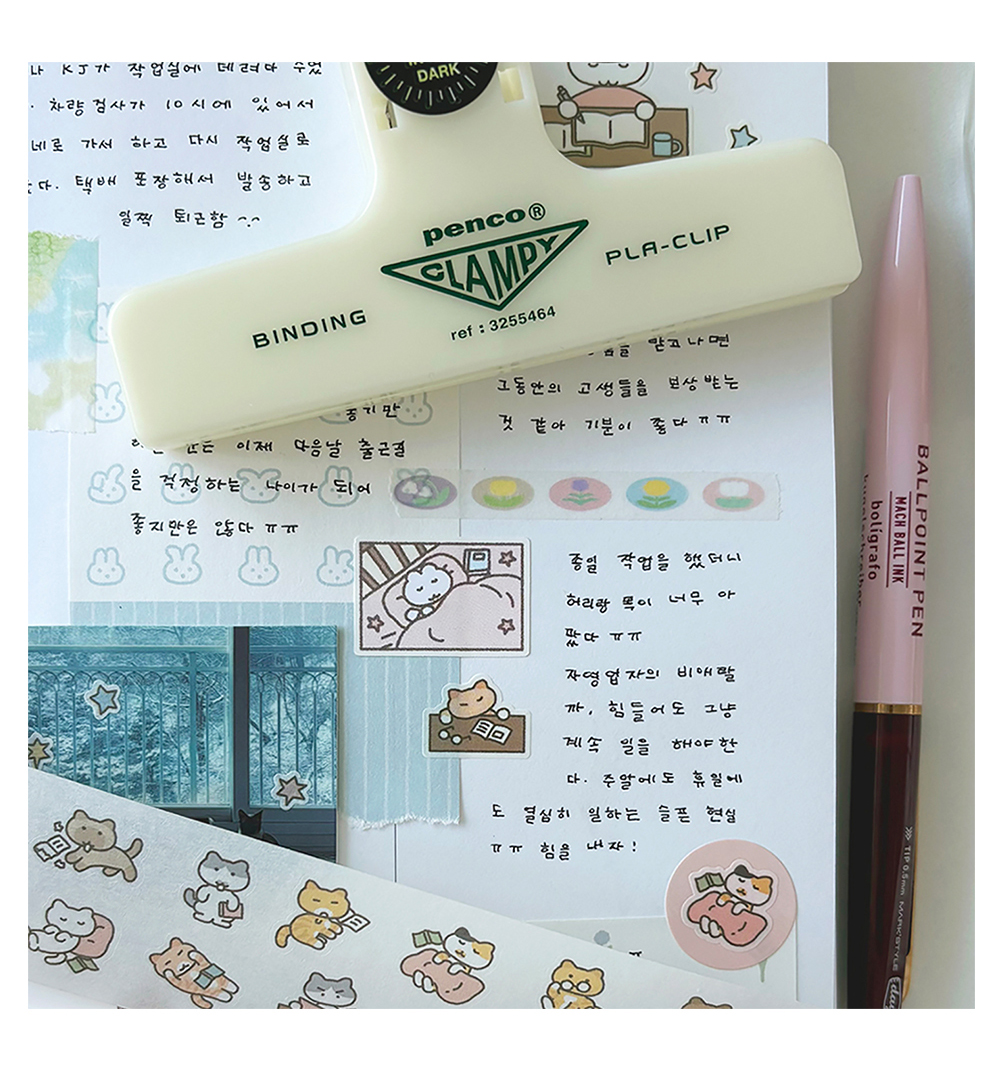 나 KJ가 작업실에 데려다 주었
차량검사가 10시에 있어서
네로 가서 하고 다시 작업실로
택배 포장해서 발송하고
일찍 퇴근함
DARK
penco®
CLAMPY
BINDING
PLA-CLIP
ref : 3255464
이제 다음날 출근길
을 걱정하는 나이가 되어
좋지만은 않다 ㅠㅠ
받고나면
그동안의 고생들을 보상 받는
것 같아 기분이 좋다 ㅠㅠ
종일 작업을 했더니
허리랑 목이 너무 아
팠다 ㅠㅠ
자영업자의 비애랄
까, 힘들어도 그냥
계속 일을 해야한
다. 주말에도 휴일에
도 열심히 일하는 슬픈 현실
ㅠㅠ 힘을 내자!
BALLPOINT PEN
MACH BALL INK
bolígrafo
TIP 0.5mm MARK'STYLE